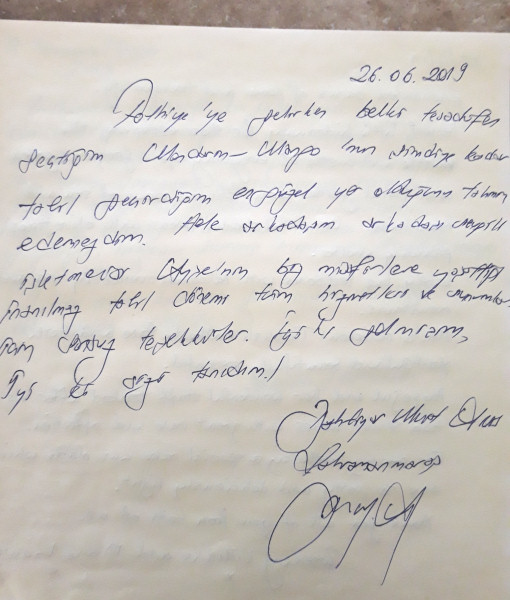 26.06.2019
Fethiye'ye gelirken belki tesadüfen
seçtiğim Mandarin-Mango'nun şimdiye kadar
tatil geçirdiğim en güzel yer olduğunu tahmin
edemezdim. Hele arkadaşım
işletmecisi Ayşe'nin biz misafirlere yaşattığı
inanılmaz tatil dönemi tüm hizmetleri ve
için sonsuz teşekkürler. İyi ki gelmişim,
İyi ki sizi tanıdım!
Murat
Kahramanmaraş